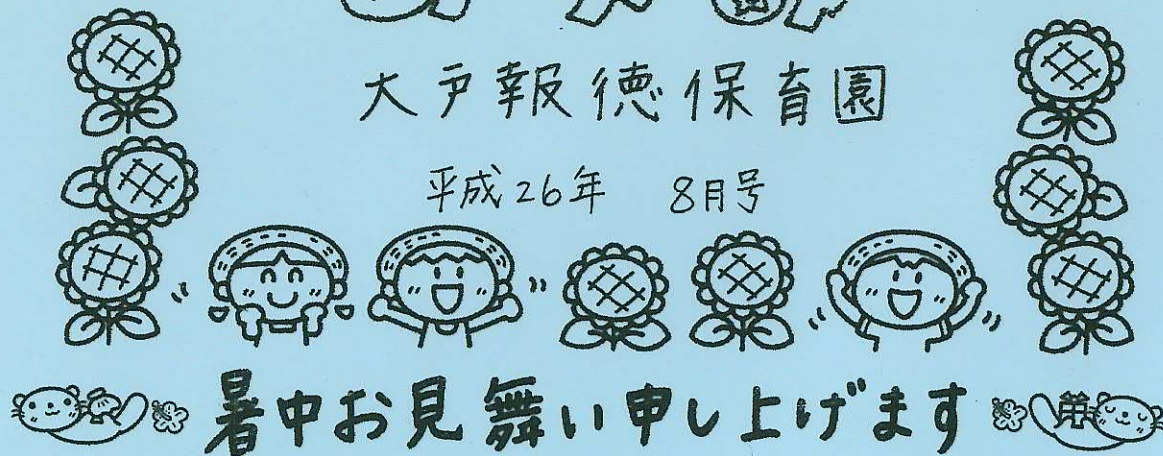 大戸報徳保育園
平成26年 8月号
暑中お見舞い申し上げます